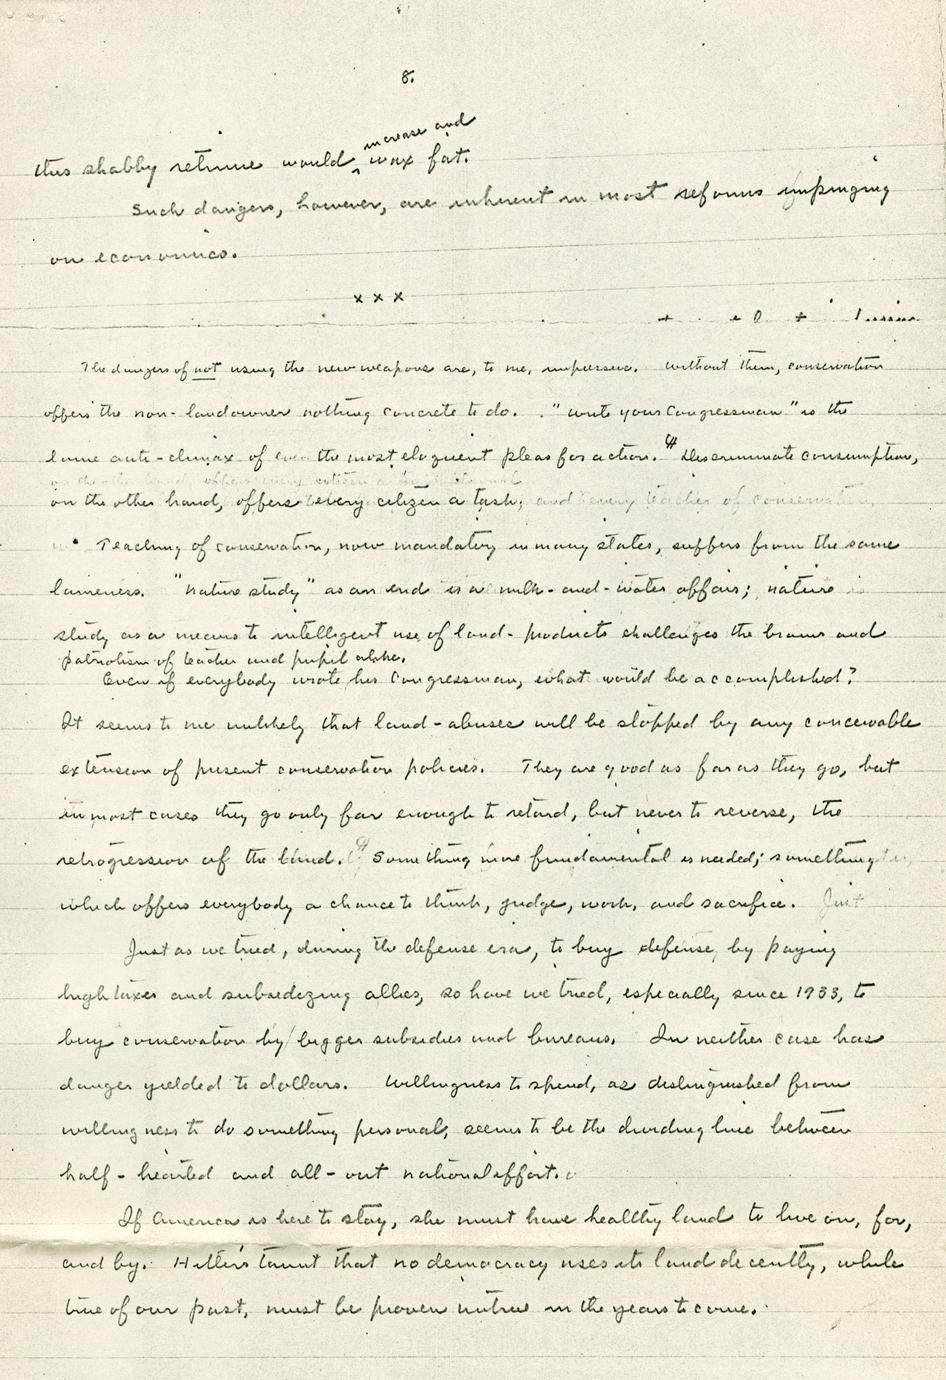 8.
increase and
this shabby retinue would ‸ wax fat.
Such dangers, however, are inherent in most reforms impinging
on economics.
x x x
The dangers of not using the new weapons are, to me, impressive. Without them, conservation
offers the non-landowner nothing concrete to do. "Write your Congressman" is the
lame anti-climax of the most eloquent pleas for action. ¶ Discriminate consumption,
on the other hand, offers every citizen a task; and every teacher of conservation
Teaching of conservation, now mandatory in many states, suffers from the same
lameness. "Nature study" as an end is a milk-and-water affair; nature
study as a means to intelligent use of land-products challenges the brains and
patriotism of teacher and pupil alike.
Even if everybody wrote his Congressman, what would be accomplished?
It seems to me unlikely that land-abuses will be stopped by any conceivable
extension of present conservation policies. They are good as far as they go, but
in most cases they go only far enough to retard, but never to reverse, the
retrogression of the land. ¶ Something more fundamental is needed; something
which offers everybody a chance to think, judge, work, and sacrifice. Just
Just as we tried, during the defense era, to buy defense by paying
high taxes and subsidizing allies, so have we tried, especially since 1933, to
buy conservation by bigger subsidies and bureaus. In neither case has
danger yielded to dollars. Willingness to spend, as distinguished from
willingness to do something personal, seems to be the dividing line between
half-hearted and all-out national effort.
If America is here to stay, she must have healthy land to live on, for,
and by. Hitler's taunt that no democracy uses its land decently, while
true of our past, must be proven untrue in the years to come.